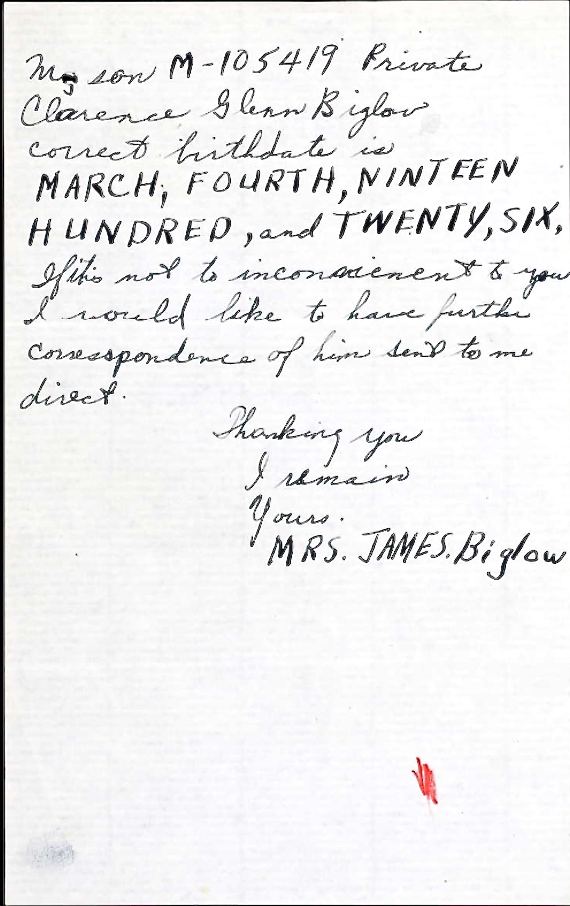 My son M-105419 Private
Clarence Glenn Biglow
correct birthdate is
MARCH, FOURTH, NINTEEN
HUNDRED, and TWENTY, SIX,
If its not to inconvienent to you
I would like to have further
correspondence of him sent to me
direct.
Thanking you
I remain
Yours.
MRS. JAMES. Biglow